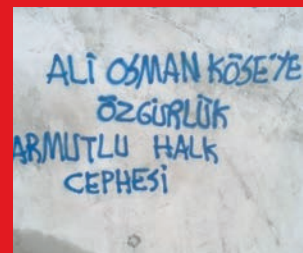 ALİ OSMAN KÖSE'YE
ÖZGÜRLÜK
ARMUTLU HALK
CEPHESİ